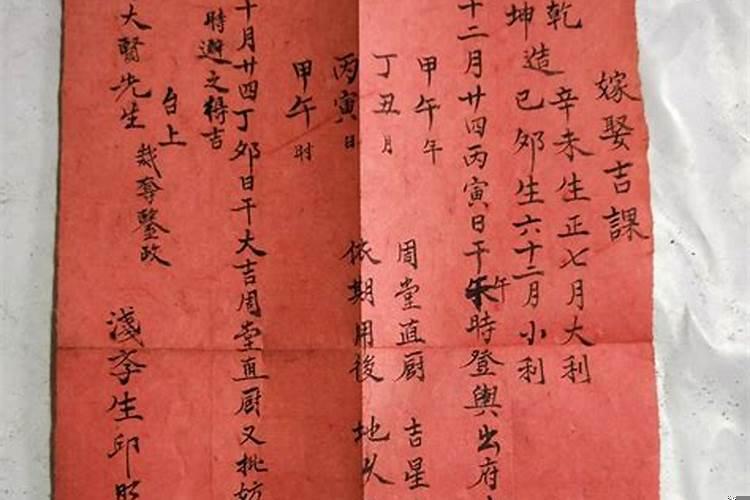 嫁娶吉課
乾 辛未生正七月大利
坤造 己夘生六十二月小利
十二月廿四丙寅日干午時登輿出府
甲午年 周堂直厨 吉星
丁丑月
丙寅日 依期用後 地久
甲午时
十月廿四丁夘日干大吉周堂直厨又批妨
時避之得吉
台上 裁奪鑒政
大賢先生
淺孝生邱